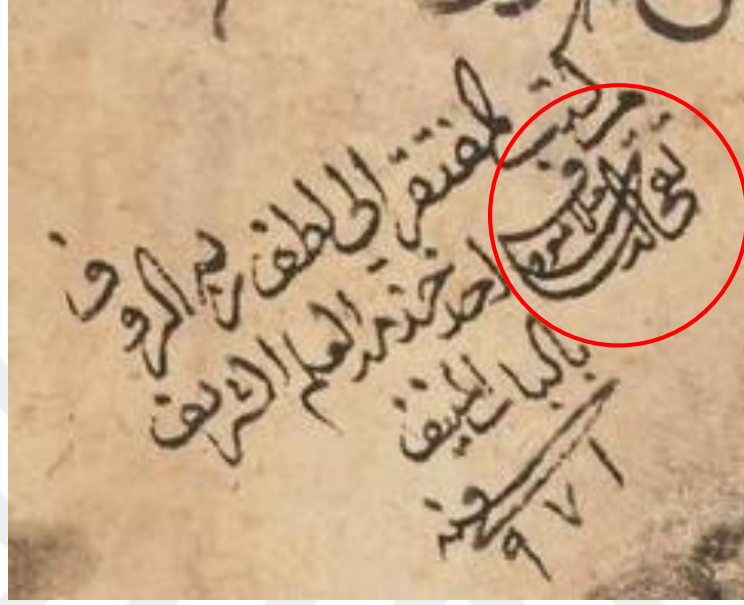 من كتب المفتقر الى لطف ربه الروف
تقي الدين معروف احد خدمة العلم الشريف
بالباب المنيف
سنه
٩٧١